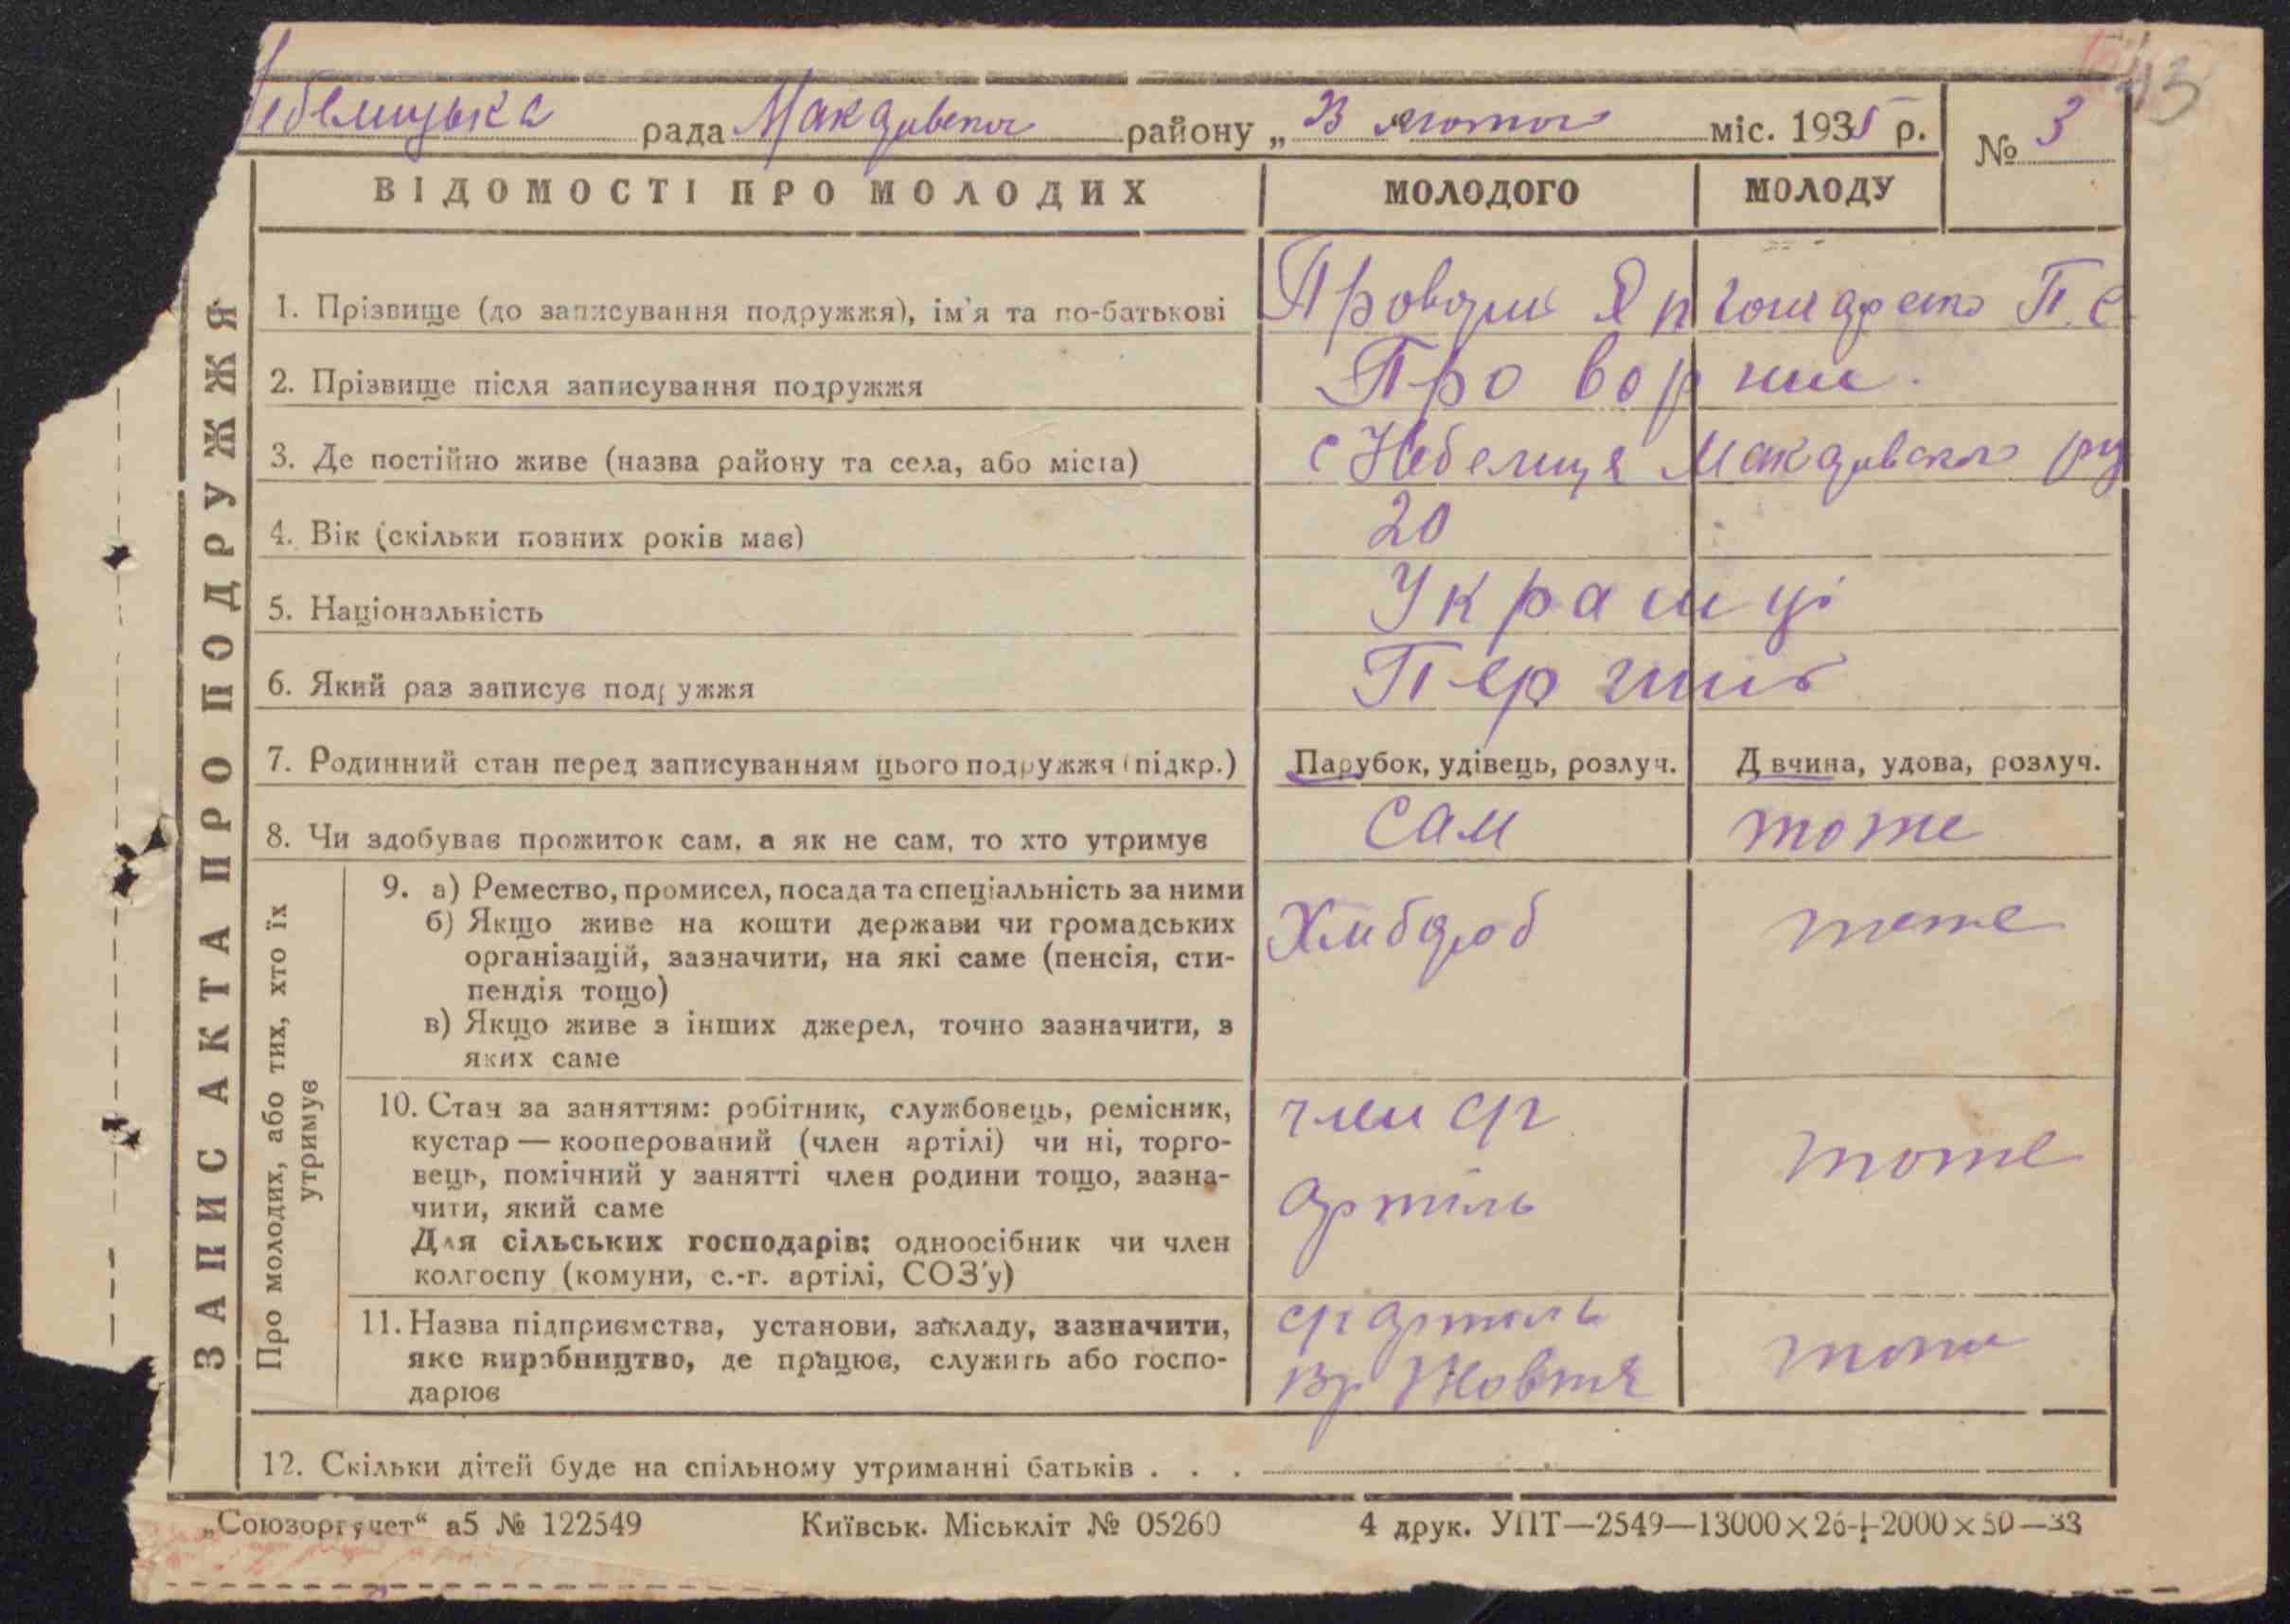 Небелицька рада Макарівського району „ 23 лютого міс. 1935 р.
№ 3
43
ВІДОМОСТІ ПРО МОЛОДИХ МОЛОДОГО МОЛОДУ
ЗАПИС АКТА ПРО ПОДРУЖЖЯ
1. Прізвище (до записування подружжя), ім'я та по-батькові Гончаренко П. С
2. Прізвище після записування подружжя
3. Де постійно живе (назва району та села, або міста) с Небелиця Макарівського ру
4. Вік (скільки повних років має) 20
5. Національність Українці
6. Який раз записує подружжя Перший
7. Родинний стан перед записуванням цього подружжя (підкр.) Парубок, удівець, розлуч. Д вчина, удова, розлуч.
8. Чи здобуває прожиток сам, а як не сам, то хто утримує сам тоже
Про молодих, або тих, хто їх утримує
9. а) Ремество, промисел, посада та спеціальність за ними Хлібороб тоже
б) Якщо живе на кошти держави чи громадських
організацій, зазначити, на які саме (пенсія, сти-
пендія тощо)
в) Якщо живе з інших джерел, точно зазначити, з
яких саме
10. Стан за заняттям: робітник, службовець, ремісник, член сг
кустар — кооперований (член артілі) чи ні, торго-
вець, помічний у занятті член родини тощо, зазна- тоже
чити, який саме артіль
Для сільських господарів: одноосібник чи член
колгоспу (комуни, с.-г. артілі, СОЗ'у)
11. Назва підприємства, установи, закладу, зазначити, сг артиль
яке виробництво, де працює, служить або госпо- тоже
дарює Жовтня
12. Скільки дітей буде на спільному утриманні батьків . . .
„Союзоргучет“ а5 № 122549 Київськ. Міськліт № 05260 4 друк. УПТ—2549—13000×26+2000×50—33